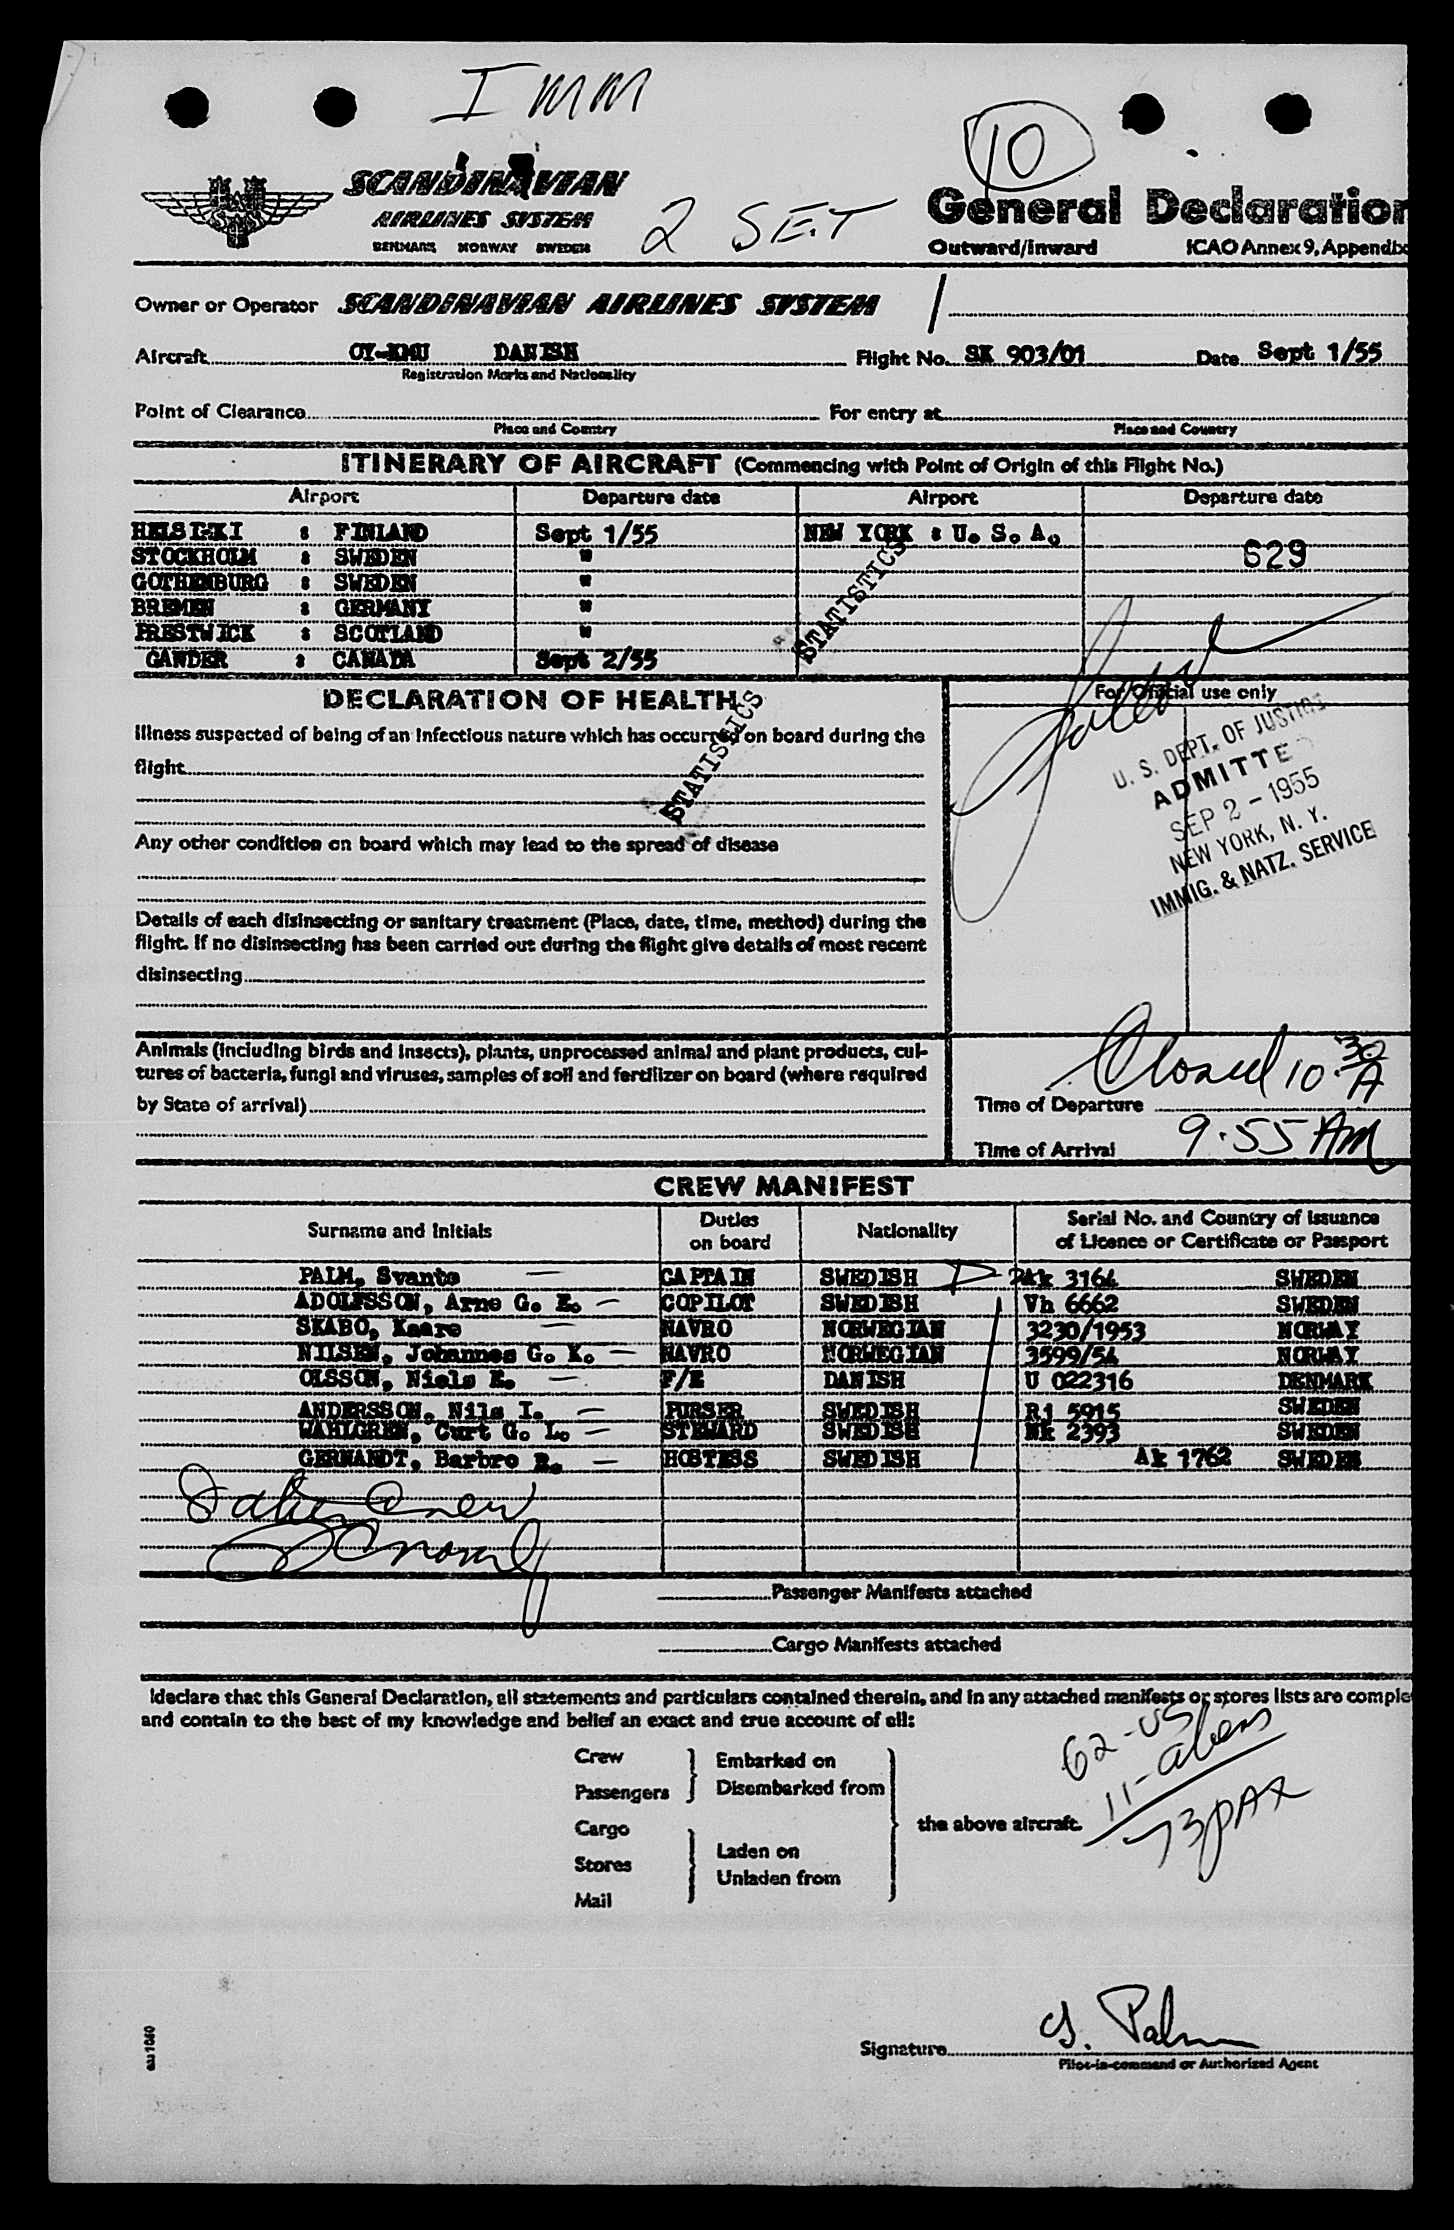 I MM
10
SCANDINAVIAN
AIRLINES SYSTEM
DENMARK NORWAY SWEDEN
2 SET
General Declaration
Outward/Inward ICAO Annex 9, Appendix
Owner or Operator SCANDINAVIAN AIRLINES SYSTEM
Aircraft OY-KMU DANISH Flight No. SK 903/01 Date Sept 1/55
Registration Marks and Nationality
Point of Clearance For entry at
Place and Country Place and Country
ITINERARY OF AIRCRAFT (Commencing with Point of Origin of this Flight No.)
Airport Departure date Airport Departure date
HELSINKI : FINLAND Sept 1/55 NEW YORK : U. S. A.
STOCKHOLM : SWEDEN " 629
GOTHENBURG : SWEDEN "
BREMEN : GERMANY "
PRESTWICK : SCOTLAND "
GANDER : CANADA Sept 2/55
STATISTICS
STATISTICS
DECLARATION OF HEALTH
For Official use only
Illness suspected of being of an infectious nature which has occurred on board during the
flight
U. S. DEPT. OF JUSTICE
ADMITTED
SEP 2 - 1955
NEW YORK, N. Y.
IMMIG. & NATZ. SERVICE
Any other condition on board which may lead to the spread of disease
Details of each disinsecting or sanitary treatment (Place, date, time, method) during the
flight. If no disinsecting has been carried out during the flight give details of most recent
disinsecting
Animals (including birds and insects), plants, unprocessed animal and plant products, cul-
tures of bacteria, fungi and viruses, samples of soil and fertilizer on board (where required
by State of arrival)
Closed 10.30 A
Time of Departure
Time of Arrival 9.55 AM
CREW MANIFEST
Surname and Initials Duties on board Nationality Serial No. and Country of Issuance of Licence or Certificate or Passport
PALM, Svante — CAPTAIN SWEDISH Ak 3164 SWEDEN
ADOLFSSON, Arne G. E. — COPILOT SWEDISH Vh 6662 SWEDEN
SKABO, Kaare — NAVRO NORWEGIAN 3230/1953 NORWAY
NILSEN, Johannes G. K. — NAVRO NORWEGIAN 3599/54 NORWAY
OLSSON, Niels E. — F/E DANISH U 022316 DENMARK
ANDERSSON, Nils I. — PURSER SWEDISH Ri 5915 SWEDEN
WAHLGREN, Curt G. L. — STEWARD SWEDISH Nk 2393 SWEDEN
GERNANDT, Barbro B. — HOSTESS SWEDISH Ak 1762 SWEDEN
Passenger Manifests attached
Cargo Manifests attached
I declare that this General Declaration, all statements and particulars contained therein, and in any attached manifests or stores lists are comple
and contain to the best of my knowledge and belief an exact and true account of all:
62-US
11-aliens
73 PAX
Crew
Passengers
Embarked on
Disembarked from
Cargo
Stores
Mail
Laden on
Unladen from
the above aircraft.
au 1060
Signature S. Palm
Pilot-in-command or Authorized Agent